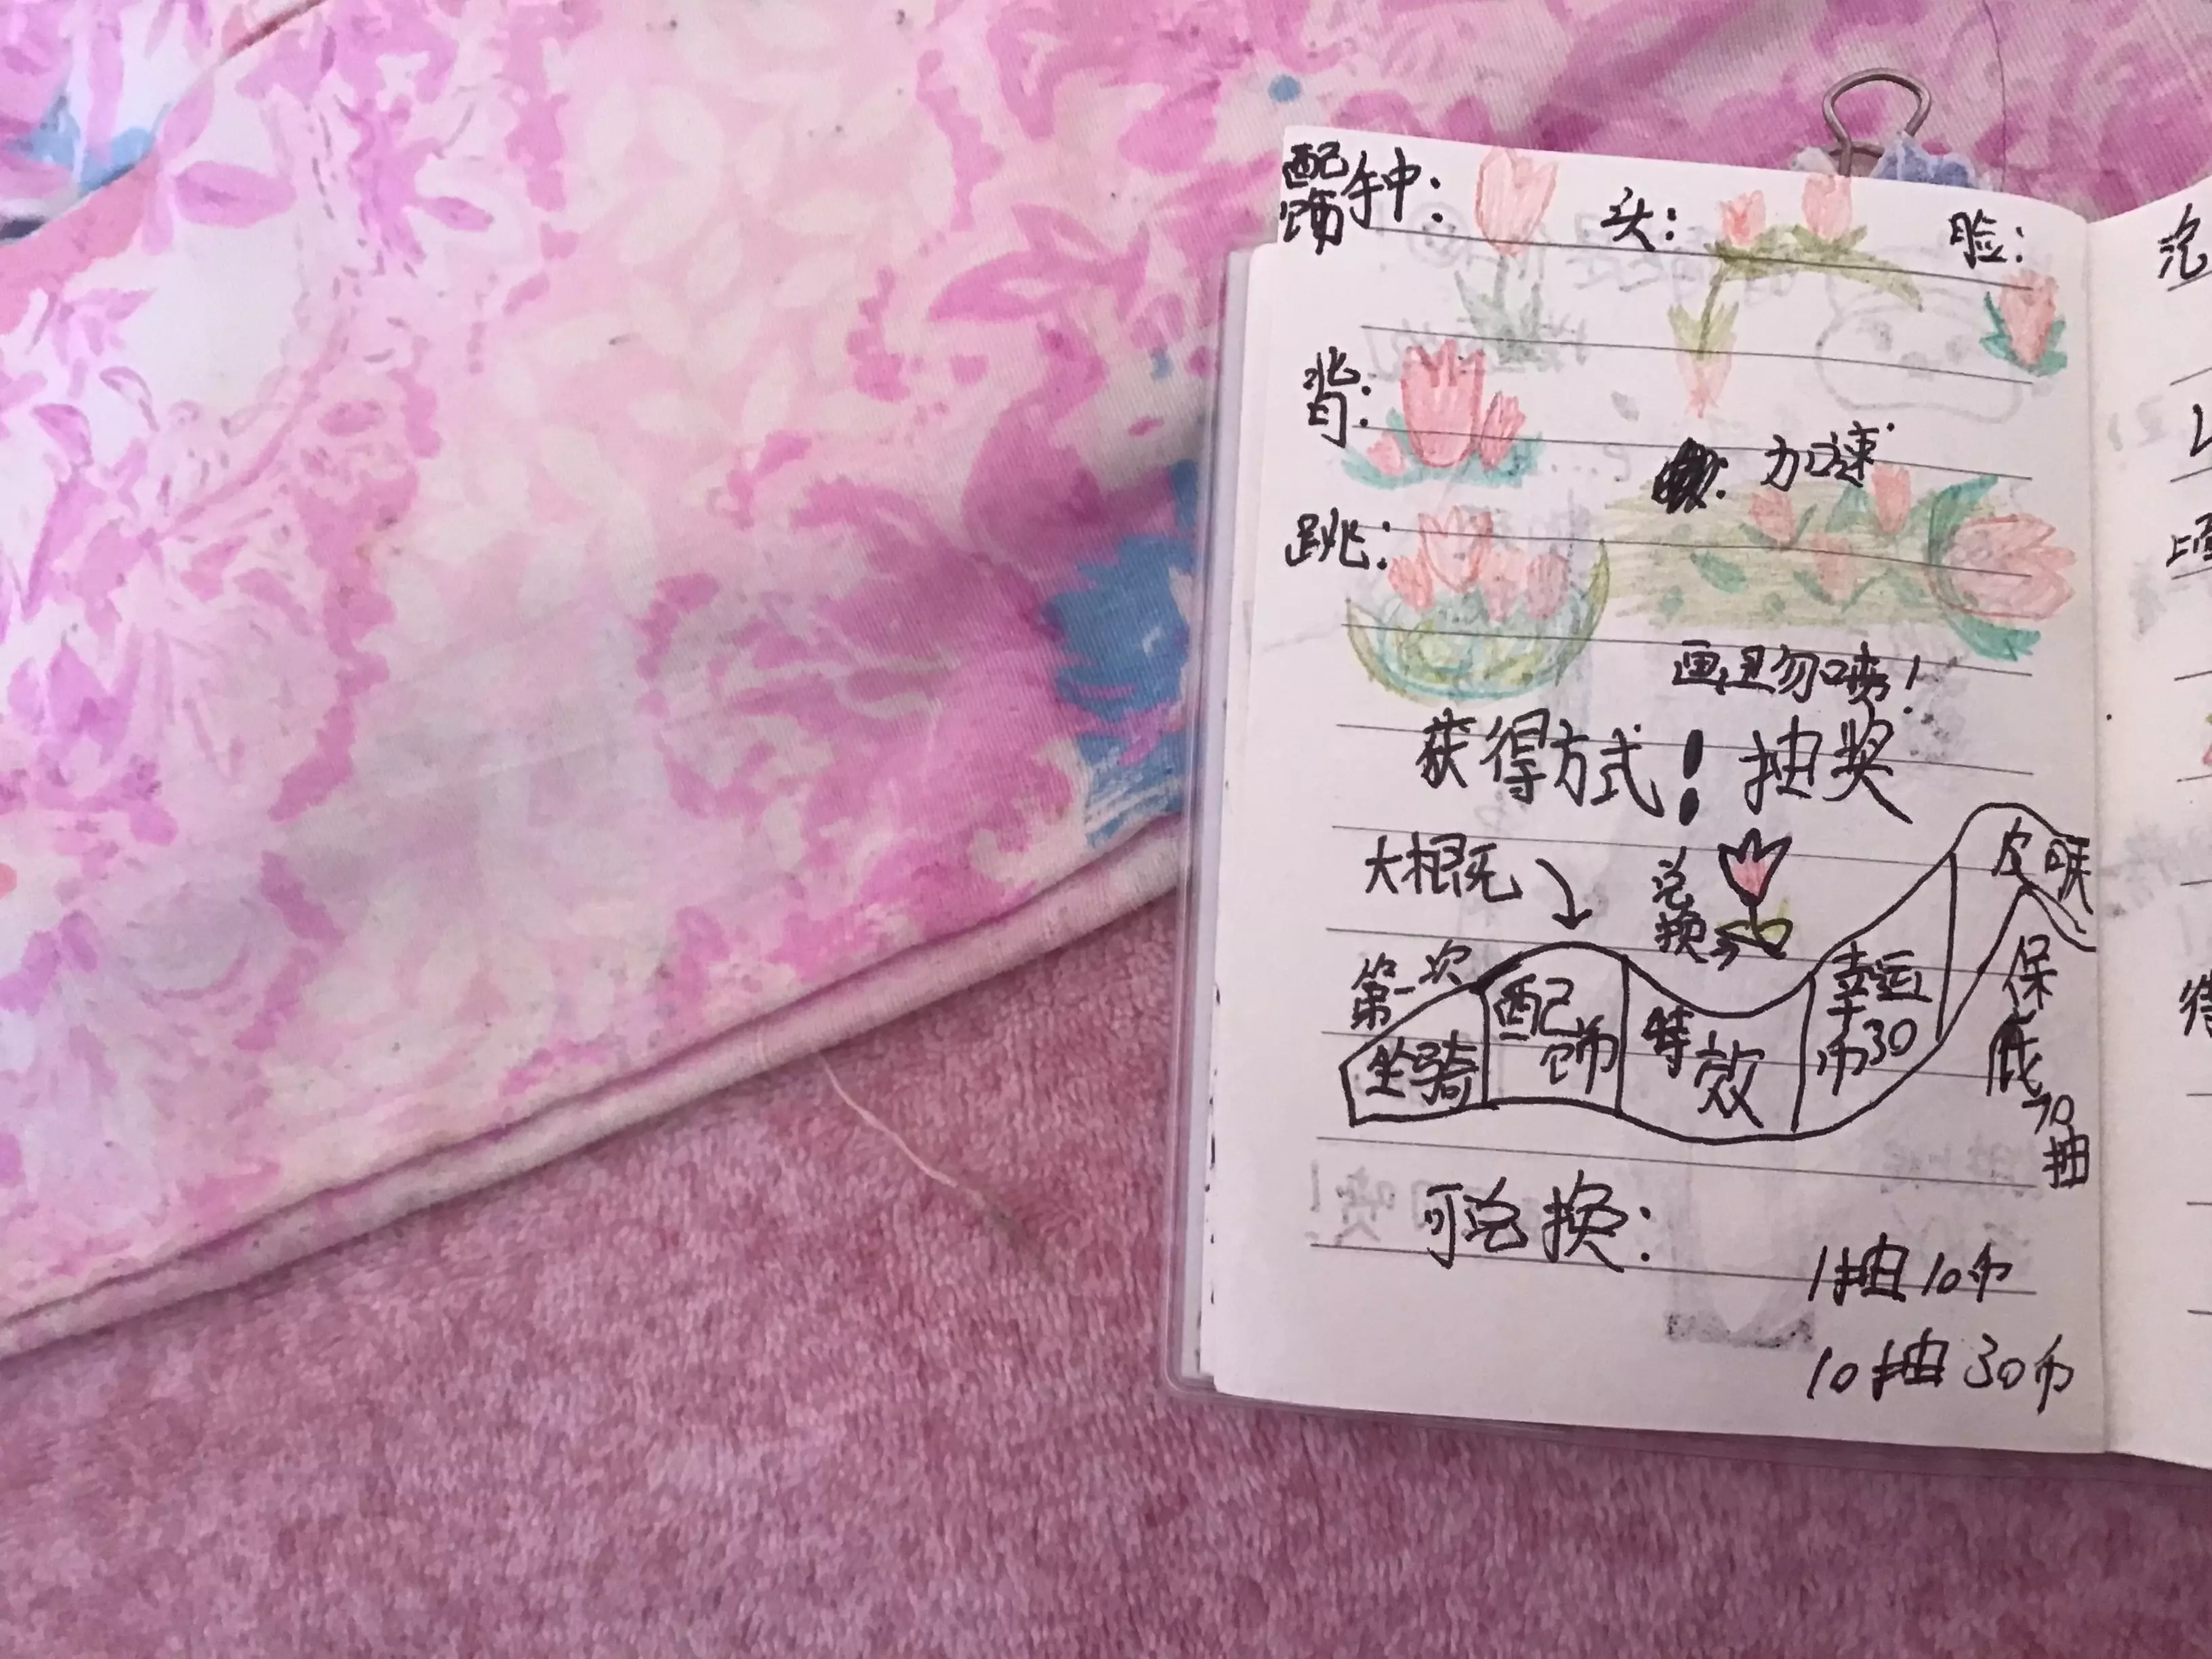 配饰 钟: 头: 脸:
背:
加速
跳:
画丑勿喷!
获得方式! 抽奖
大概 兑换
第一次
坐骑 配饰 特效 幸运币30 皮肤
保底70抽
可兑换:
1抽10币
10抽30币